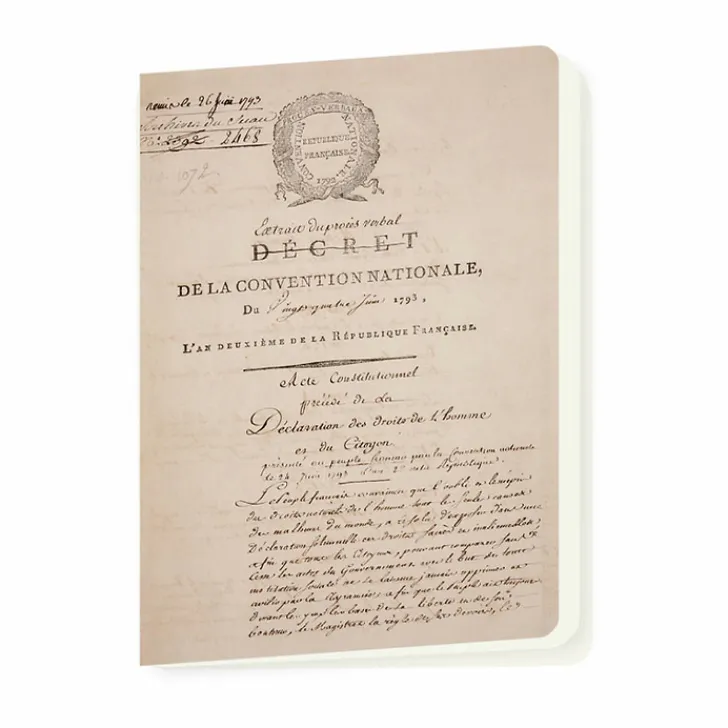 remis le 26 Juin 1793
Archives du Sceau
N.° 2392 - 2468
1072
PROCÈS-VERBAUX CONVENTION NATIONALE
RÉPUBLIQUE
FRANÇAISE
1792
Extrait du procès verbal
DÉCRET
DE LA CONVENTION NATIONALE,
Du Vingt-quatre Juin 1793,
L'AN DEUXIÈME DE LA RÉPUBLIQUE FRANÇAISE.
Acte Constitutionnel
précédé de la
Déclaration des droits de l'homme
et du Citoyen
présenté au peuple français par la Convention nationale
le 24 Juin 1793 l'an 2e de la République.
Le Peuple français convaincu que l'oubli et le mépris
des droits naturels de l'homme sont les seules causes
des malheurs du monde, a résolu d'exposer dans une
Déclaration solennelle ces droits sacrés et inaliénables,
afin que tous les Citoyens, pouvant comparer sans
Cesse les actes du Gouvernement avec le but de toute
institution sociale ne se laissent jamais opprimer et
avilir par la tyrannie; afin que le Peuple ait toujours
devant les yeux les bases de sa liberté et de son
bonheur, le Magistrat la règle de ses devoirs, le